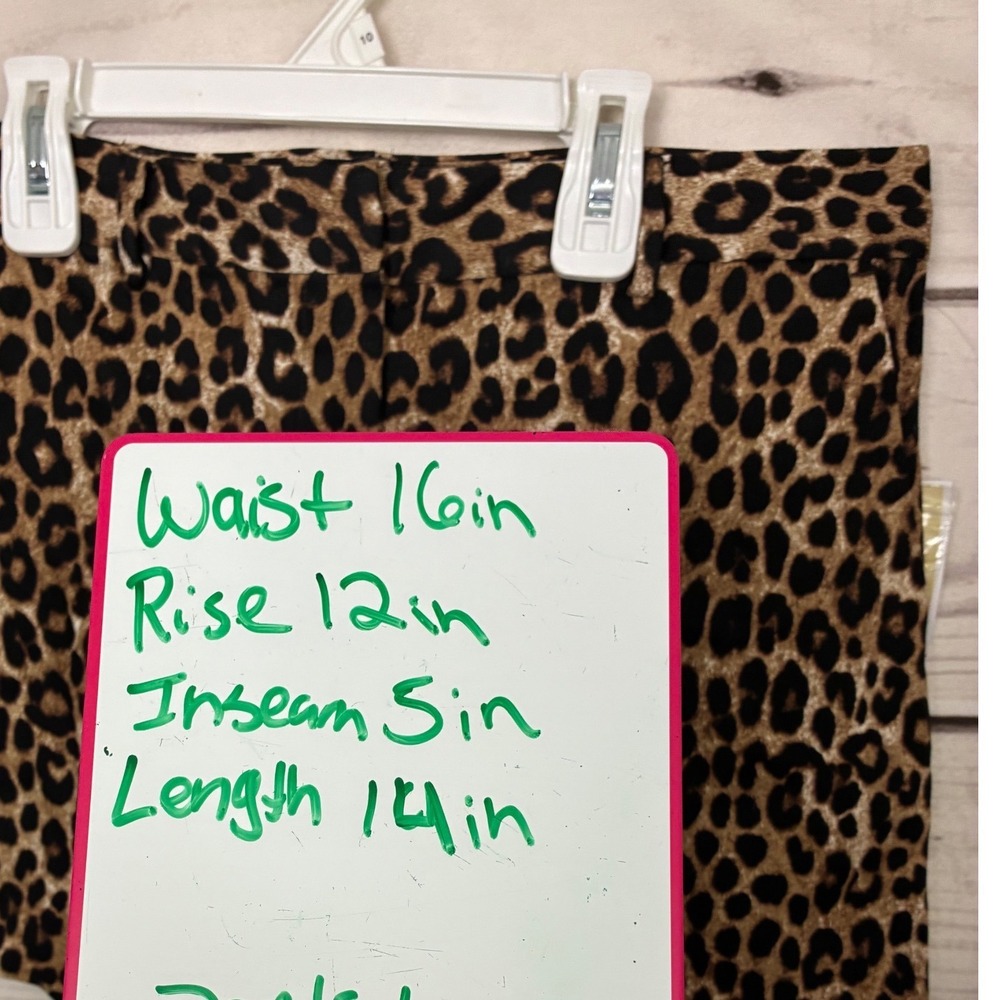 10
Waist 16in
Rise 12in
Inseam 5in
Length 14in